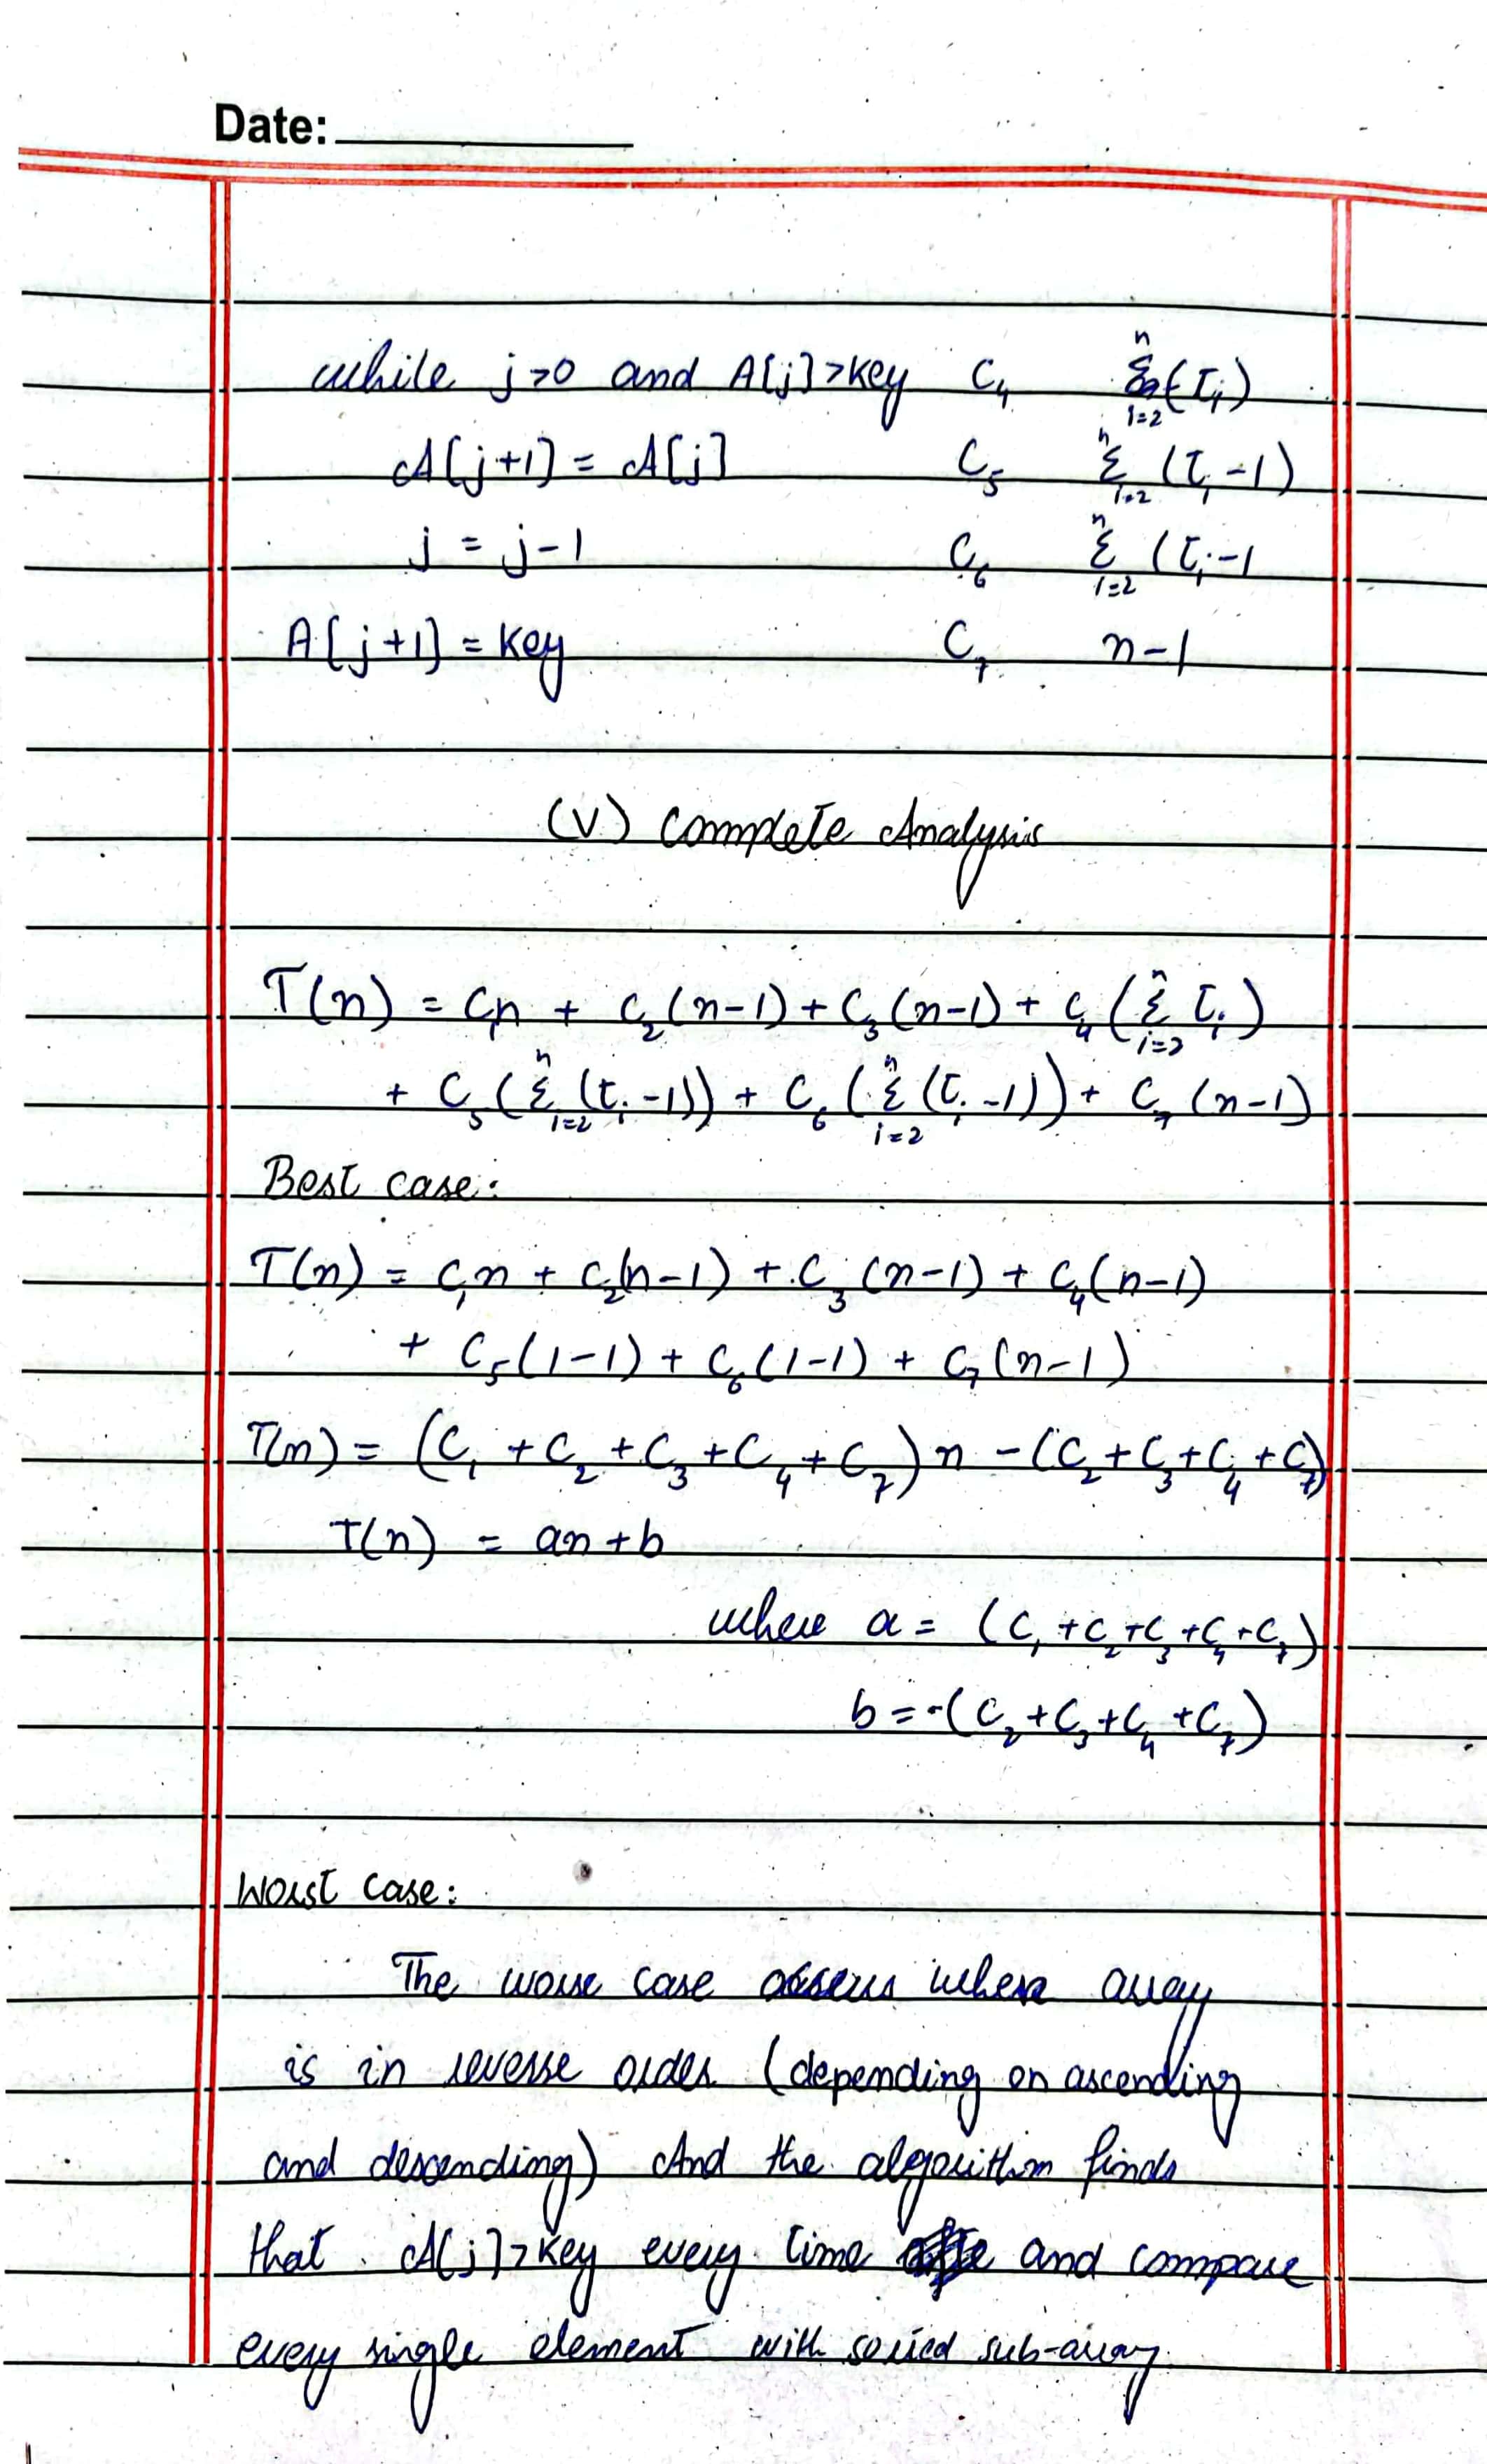 Date:
while j>0 and A[j]>key C₄ n Σ i=2 (tᵢ)
A[j+1] = A[j] C₅ n Σ i=2 (tᵢ-1)
j = j-1 C₆ n Σ i=2 (tᵢ-1
A[j+1] = key C₇ n-1
(V) Complete Analysis
T(n) = C₁n + C₂(n-1) + C₃(n-1) + C₄ ( n Σ i=2 tᵢ )
+ C₅ ( n Σ i=2 (tᵢ-1)) + C₆ ( n Σ i=2 (tᵢ-1)) + C₇ (n-1)
Best case:
T(n) = C₁n + C₂(n-1) + C₃(n-1) + C₄(n-1)
+ C₅(1-1) + C₆(1-1) + C₇(n-1)
T(n) = (C₁+C₂+C₃+C₄+C₇)n -(C₂+C₃+C₄+C₇)
T(n) = an+b
where a = (C₁+C₂+C₃+C₄+C₇)
b = -(C₂+C₃+C₄+C₇)
Worst case:
The worse case occurs when array
is in reverse order (depending on ascending
and descending) And the algorithm finds
that A[j]>key every time and compare
every single element with sorted sub-array.